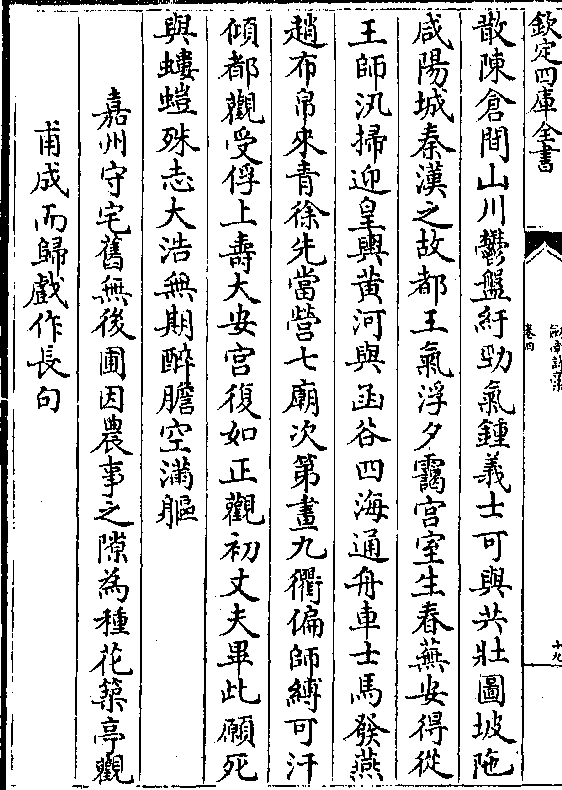 欽定四庫全書
卷四
劍南詩藁
十九
散陳倉間山川鬱盤紆勁氣鍾義士可與共壯圖坡陁
咸陽城秦漢之故都王氣浮夕靄宫室生春蕪安得從
王師汛掃迎皇輿黄河與函谷四海通舟車士馬發燕
趙布帛來青徐先當營七廟次第畫九衢偏師縛可汗
傾都觀受俘上壽大安宫復如正觀初丈夫畢此願死
與螻螘殊志大浩無期醉膽空滿軀
嘉州守宅舊無後圃因農事之隙為種花築亭觀
甫成而歸戲作長句